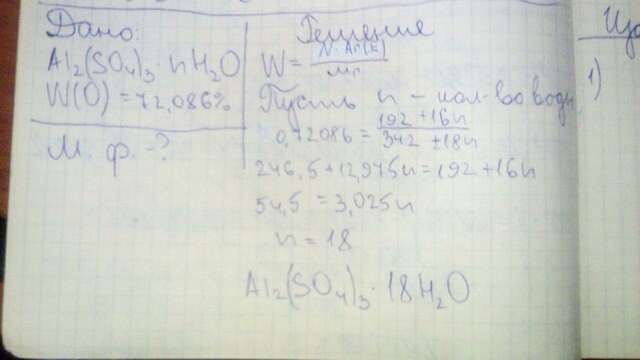 Дано:
Al₂(SO₄)₃ · nH₂O
W(O) = 72,086%
М. ф. -?
Решение
W = N·Ar(E) / Mr
Пусть n - кол-во воды
0,72086 = 192 + 16n / 342 + 18n
246,5 + 12,975n = 192 + 16n
54,5 = 3,025n
n = 18
Al₂(SO₄)₃ · 18H₂O
1)